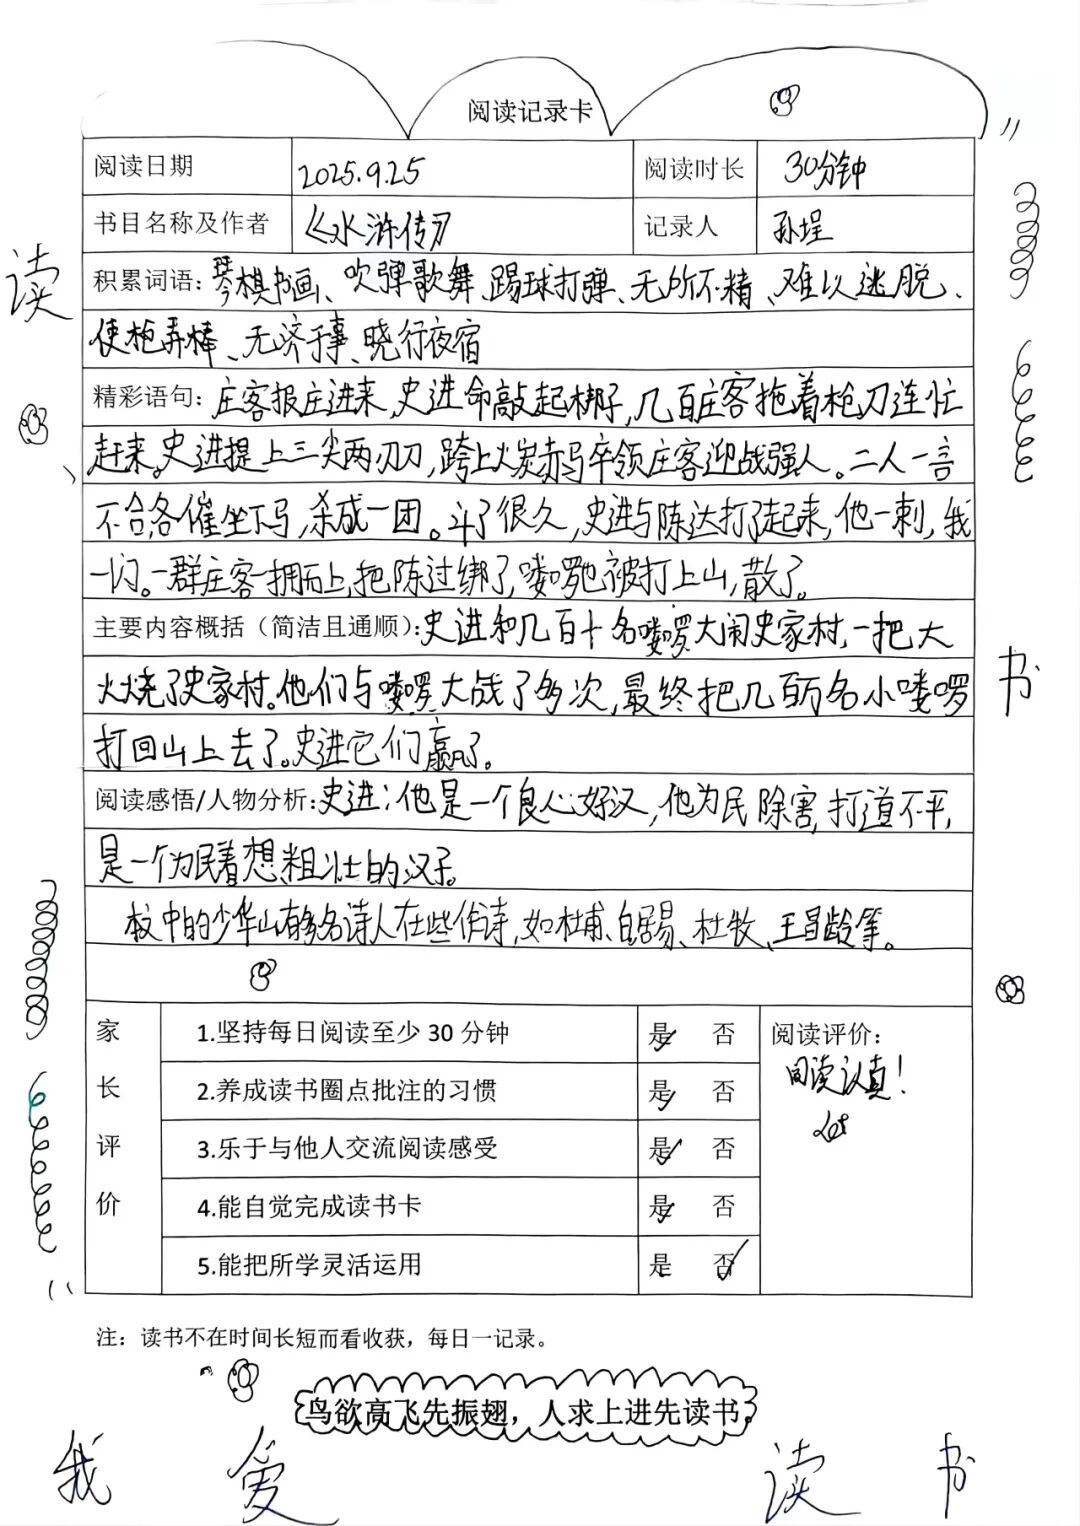 阅读记录卡
阅读日期 2025.9.25 阅读时长 30分钟
书目名称及作者 《水浒传》 记录人 孙埕
积累词语：琴棋书画、吹弹歌舞、踢球打弹、无所不精、难以逃脱、
使枪弄棒、无济于事、晓行夜宿
精彩语句：庄客报庄进来，史进命敲起梆子，几百庄客拖着枪刀连忙
赶来。史进提上三尖两刃刀，跨上火炭赤马卒领庄客迎战强人。二人一言
不合各催坐下马，杀成一团。斗了很久，史进与陈达打了起来，他一刺，我
一闪。一群庄客一拥而上，把陈过绑了，喽啰也被打上山，散了。
主要内容概括（简洁且通顺）：史进和几百十名喽啰大闹史家村，一把大
火烧了史家村。他们与喽啰大战了多次，最终把几百万名小喽啰
打回山上去了。史进它们赢了。
阅读感悟/人物分析：史进：他是一个良心好汉，他为民除害，打道不平，
是一个为民着想，粗壮的汉子。
文中的少华山有多名诗人在些作诗，如杜甫、白居易、杜牧、王昌龄等。
家长评价
1.坚持每日阅读至少 30 分钟 是✓ 否
2.养成读书圈点批注的习惯 是✓ 否
3.乐于与他人交流阅读感受 是✓ 否
4.能自觉完成读书卡 是✓ 否
5.能把所学灵活运用 是 否✓
阅读评价：
阅读认真！
注：读书不在时间长短而看收获，每日一记录。
鸟欲高飞先振翅，人求上进先读书。
读书
我爱读书